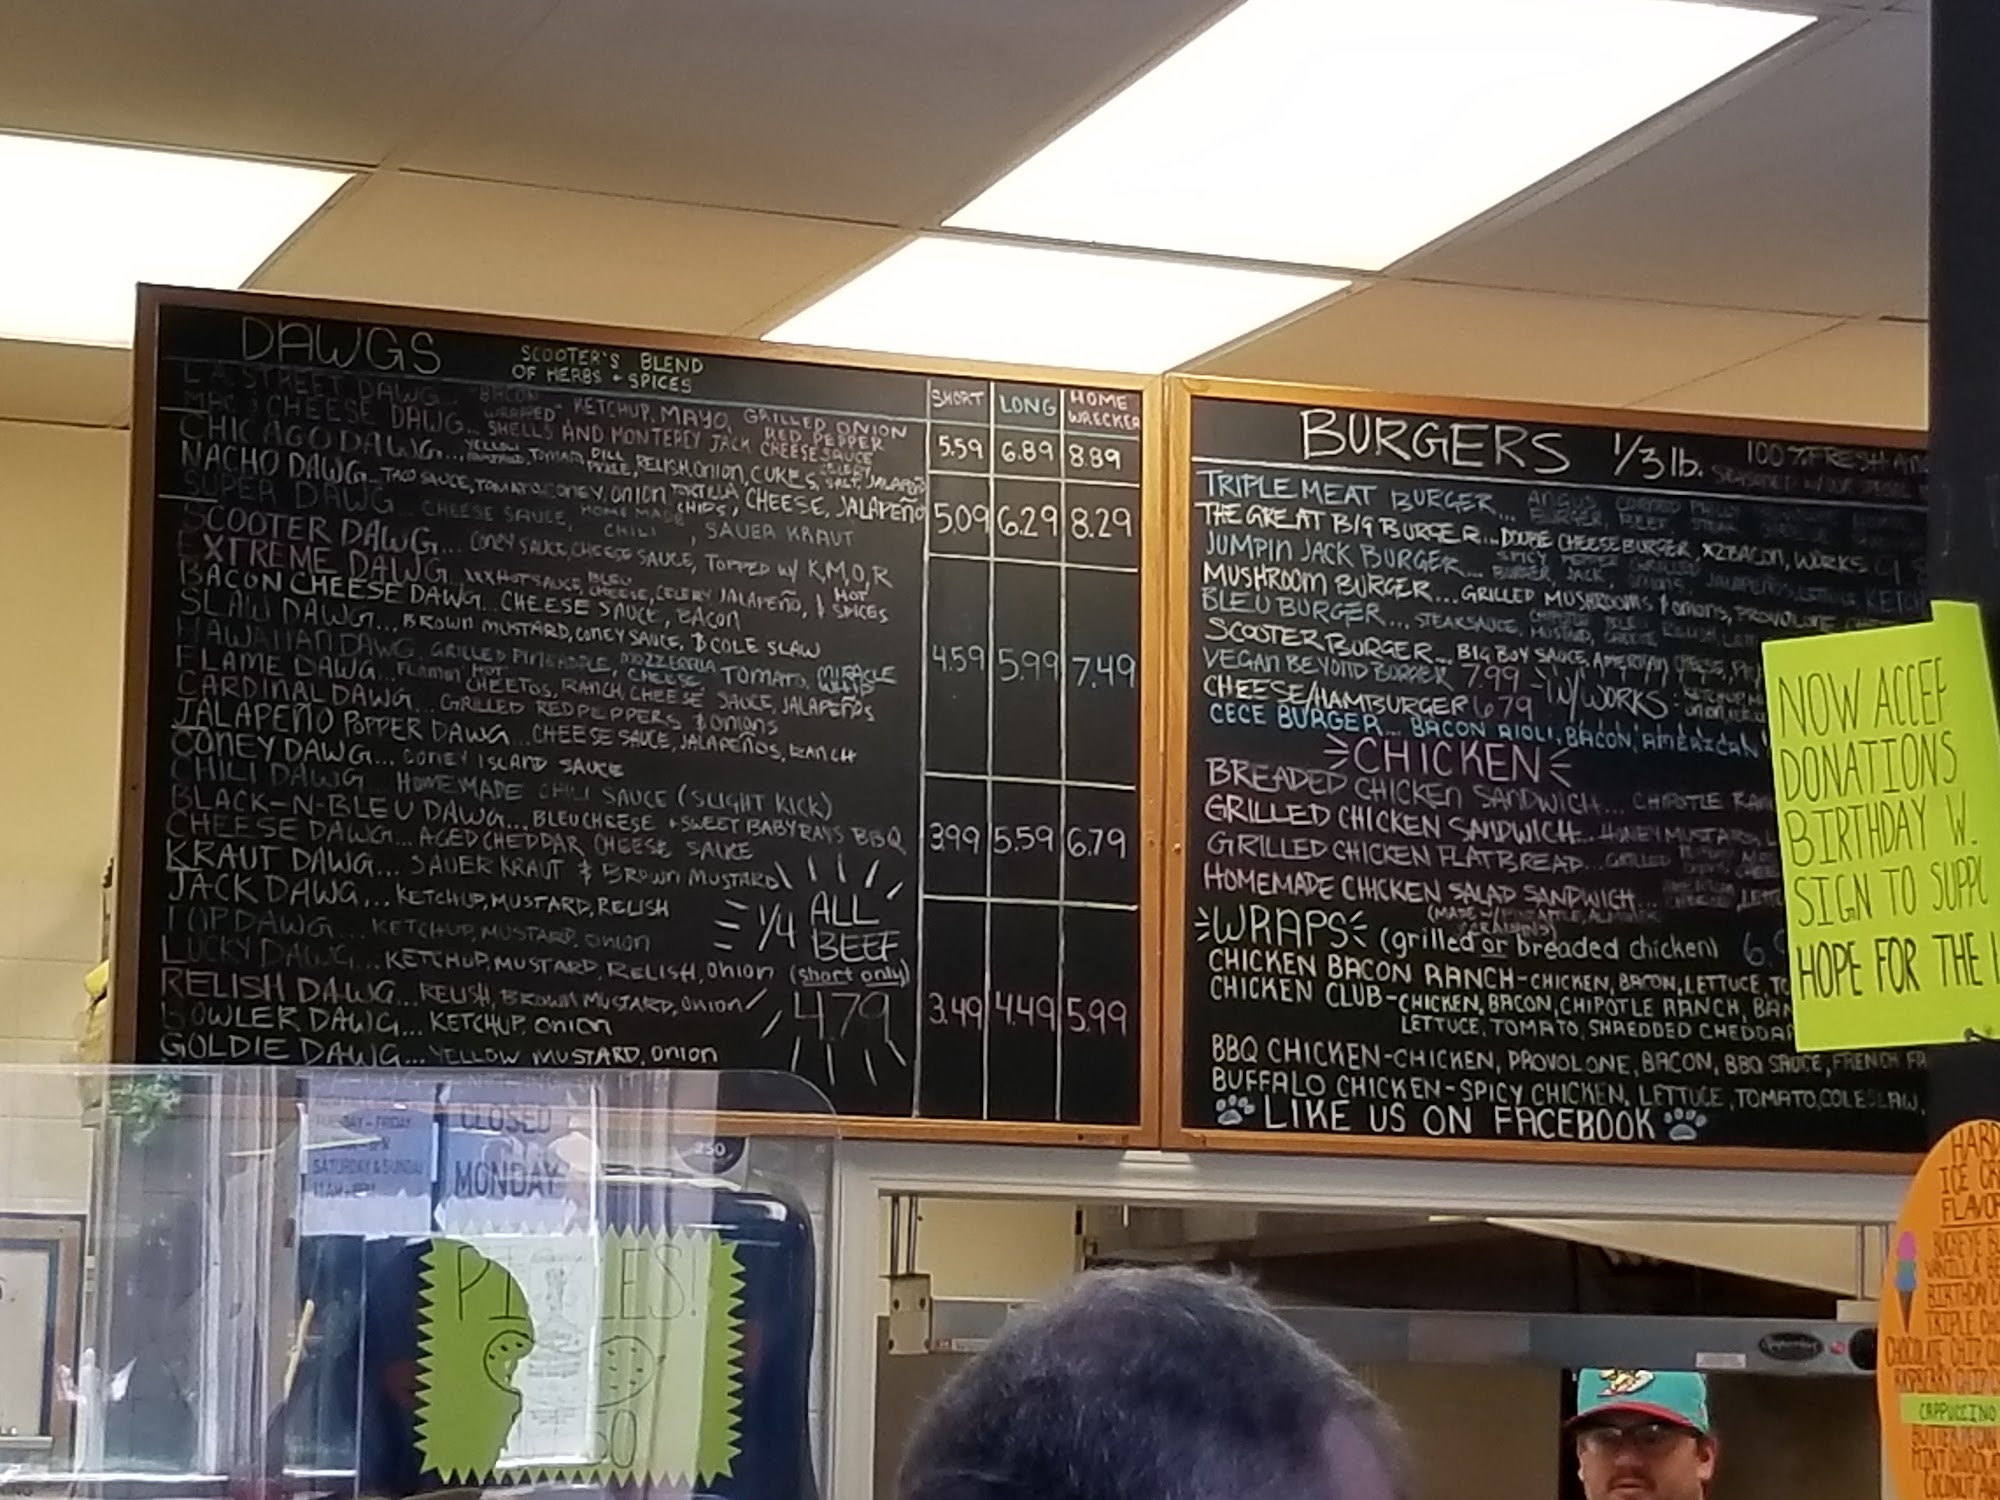 DAWGS
SCOOTER'S BLEND
OF HERBS + SPICES
SHORT LONG HOME WRECKER
L.A. STREET DAWG... BACON WRAPPED - KETCHUP, MAYO, GRILLED ONION RED PEPPER
MAC-N-CHEESE DAWG... SHELLS AND MONTEREY JACK CHEESE SAUCE
5.59 6.89 8.89
CHICAGO DAWG... YELLOW MUSTARD, TOMATO, DILL PICKLE, RELISH, ONION, CUKES, CELERY SALT, JALAPEÑO
NACHO DAWG... TACO SAUCE, TOMATO, CONEY, ONION TORTILLA CHIPS, CHEESE, JALAPEÑO
SUPER DAWG... CHEESE SAUCE, HOME MADE CHILI, SAUER KRAUT
5.09 6.29 8.29
SCOOTER DAWG... CONEY SAUCE, CHEESE SAUCE, TOPPED W/ K,M,O,R
EXTREME DAWG... XXX HOT SAUCE, BLEU CHEESE, CELERY JALAPEÑO, & HOT SPICES
BACON CHEESE DAWG... CHEESE SAUCE, BACON
SLAW DAWG... BROWN MUSTARD, CONEY SAUCE, & COLE SLAW
HAWAIIAN DAWG... GRILLED PINEAPPLE, MOZZERELLA CHEESE TOMATO, MIRACLE WHIP
FLAME DAWG... FLAMIN HOT CHEETOS, RANCH, CHEESE SAUCE, JALAPEÑOS
CARDINAL DAWG... GRILLED RED PEPPERS & ONIONS
JALAPEÑO POPPER DAWG... CHEESE SAUCE, JALAPEÑOS, RANCH
4.59 5.99 7.49
CONEY DAWG... CONEY ISLAND SAUCE
CHILI DAWG... HOMEMADE CHILI SAUCE (SLIGHT KICK)
BLACK-N-BLEU DAWG... BLEU CHEESE + SWEET BABY RAYS BBQ
CHEESE DAWG... AGED CHEDDAR CHEESE SAUCE
KRAUT DAWG... SAUER KRAUT & BROWN MUSTARD
3.99 5.59 6.79
JACK DAWG... KETCHUP, MUSTARD, RELISH
TOP DAWG... KETCHUP, MUSTARD, ONION
LUCKY DAWG... KETCHUP, MUSTARD, RELISH, ONION
RELISH DAWG... RELISH, BROWN MUSTARD, ONION
BOWLER DAWG... KETCHUP, ONION
GOLDIE DAWG... YELLOW MUSTARD, ONION
3.49 4.49 5.99
1/4 ALL
BEEF
(short only)
4.79
BURGERS 1/3 lb. 100% FRESH
TRIPLE MEAT BURGER... ANGUS BURGER, CORNED BEEF, PHILLY STEAK
THE GREAT BIG BURGER... DOUBLE CHEESEBURGER X2 BACON, WORKS
JUMPIN JACK BURGER... SPICY BURGER, PEPPER JACK, GRILLED ONIONS, JALAPEÑOS, LETTUCE, KETCH
MUSHROOM BURGER... GRILLED MUSHROOMS & ONIONS, PROVOLONE
BLEU BURGER... STEAK SAUCE,
SCOOTER BURGER... BIG BOY SAUCE, AMERICAN CHEESE,
VEGAN BEYOND BURGER 7.99 - W/ WORKS
CHEESE/HAMBURGER 6.79
CECE BURGER... BACON AIOLI, BACON, AMERICAN
CHICKEN
BREADED CHICKEN SANDWICH... CHIPOTLE
GRILLED CHICKEN SANDWICH... HONEY MUSTARD,
GRILLED CHICKEN FLATBREAD... GRILLED
HOMEMADE CHICKEN SALAD SANDWICH...
WRAPS (grilled or breaded chicken)
CHICKEN BACON RANCH - CHICKEN, BACON, LETTUCE,
CHICKEN CLUB - CHICKEN, BACON, CHIPOTLE RANCH,
LETTUCE, TOMATO, SHREDDED CHEDDAR
BBQ CHICKEN - CHICKEN, PROVOLONE, BACON, BBQ SAUCE, FRENCH
BUFFALO CHICKEN - SPICY CHICKEN, LETTUCE, TOMATO, COLESLAW.
LIKE US ON FACEBOOK
NOW ACCEP
DONATIONS
BIRTHDAY W.
SIGN TO SUPPO
HOPE FOR THE
HARD
ICE CR
FLAVOR
BUCKEYE
VANILLA
BIRTHDAY
TRIPLE CHO
CHOCOLATE CHIP
RASPBERRY CHIP
CAPPUCCINO
BUTTER PECAN
MINT CHOCOLA
COCONUT
TUESDAY - FRIDAY
SATURDAY & SUNDAY
CLOSED
MONDAY
250